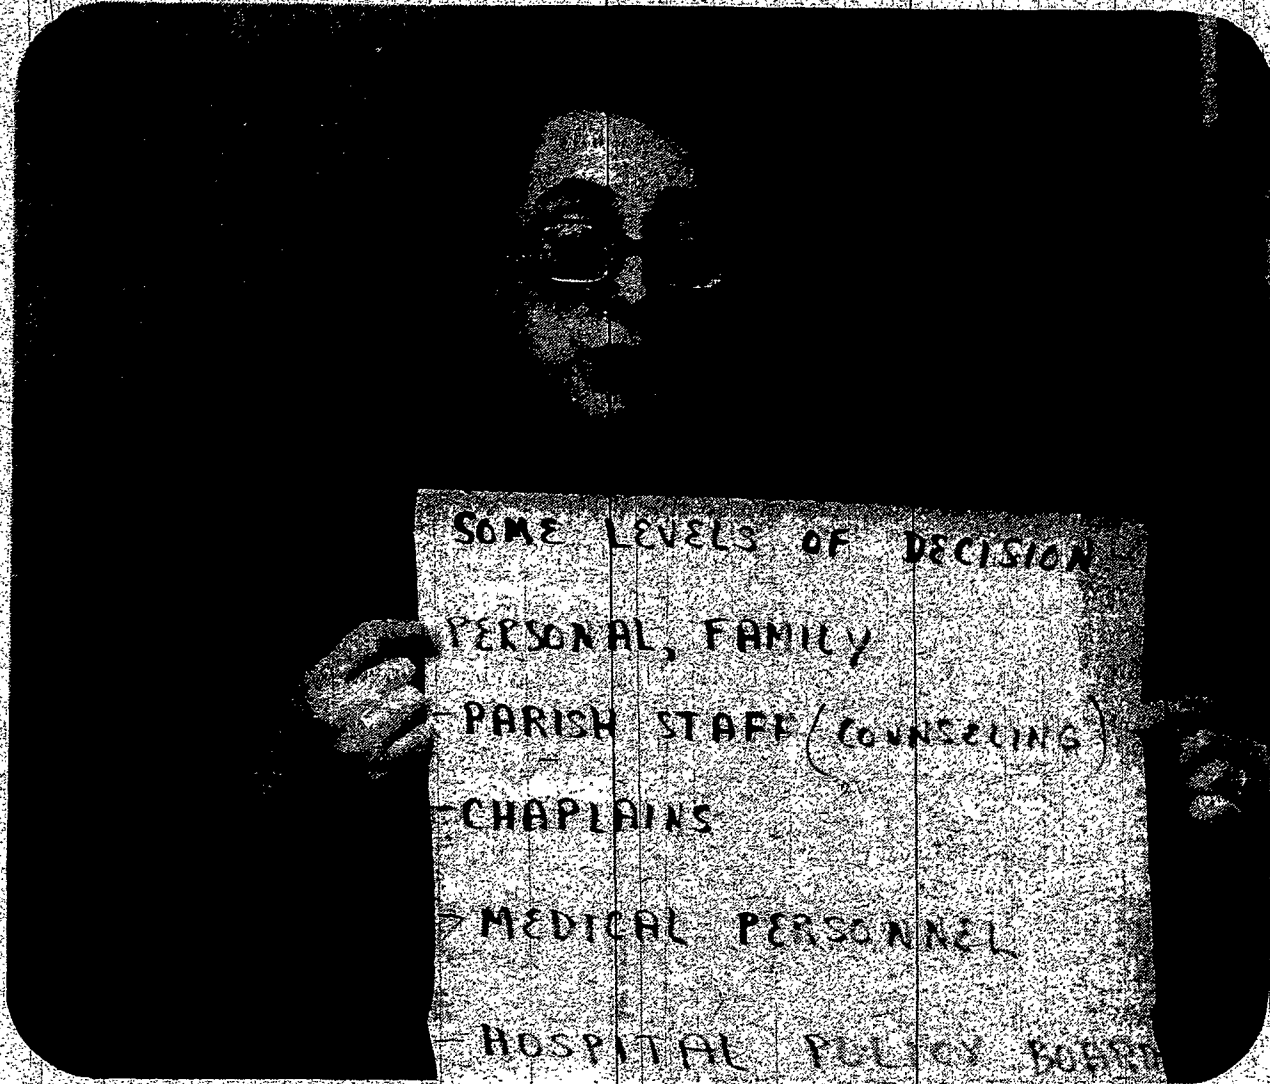 SOME LEVELS OF DECISION
PERSONAL, FAMILY
- PARISH STAFF (COUNSELING)
- CHAPLAINS
- MEDICAL PERSONNEL
- HOSPITAL POLICY BOARD